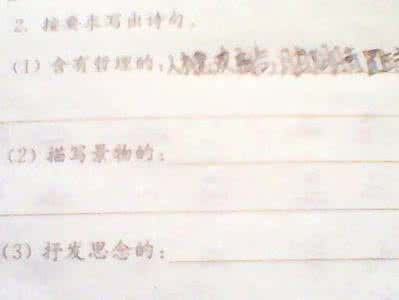 2. 按要求写出诗句。
(1) 含有哲理的:
(2) 描写景物的:
(3) 抒发思念的: